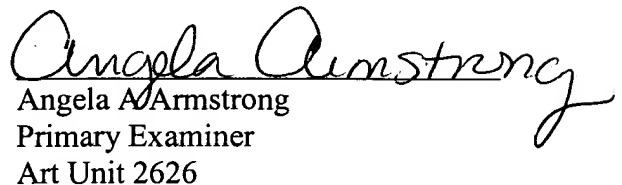 Angela Armstrong
Angela A Armstrong
Primary Examiner
Art Unit 2626